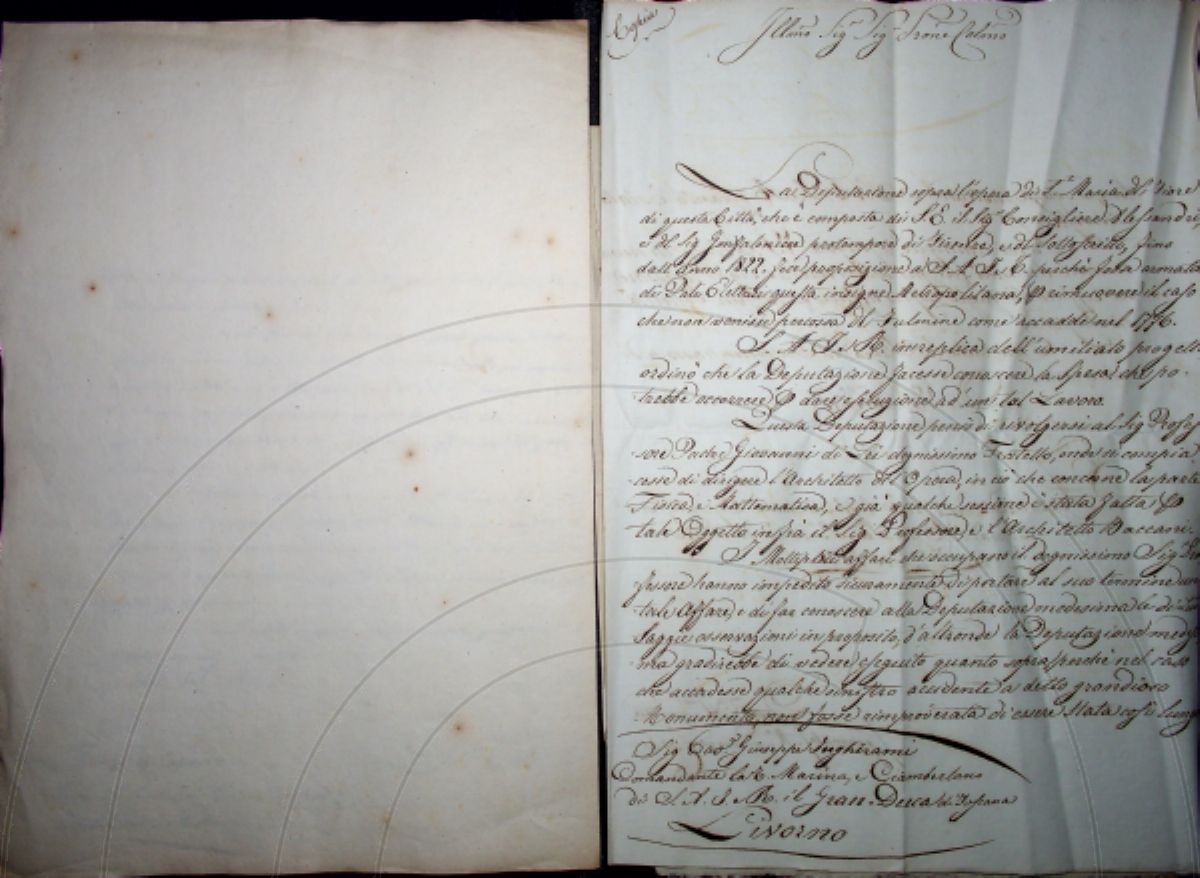 Copia
Illmo Sig.e Sig.e Prone Colmo
La Deputazione sopra l'opera di S.a Maria del Fiore
di questa Città, che è composta di S. E. il Sig.e Consigliere Alessandri,
e del Sig. Gonfaloniere protempore di Firenze, e del Sottoscritto, fino
dall'Anno 1822. fece proposizione a S. A. I. e R. perchè fosse armata
di Pali Elettrici questa insigne Metropolitana, P rimuovere il caso
che non venisse percossa dal Fulmine come accadde nel 1776.
S. A. I. e R. in replica dell'umiliato progetto
ordinò che la Deputazione facesse conoscere la Spesa che po-
trebbe occorrere P dare esecuzione ad un tal Lavoro.
Questa Deputazione pensò di rivolgersi al Sig. Profes-
sore Padre Giovanni di Lei degnissimo Fratello, onde si compia-
cesse di dirigere l'Architetto dell'Opera, in ciò che concerne la parte
Fisica, e Mattematica, e già qualche sessione è stata fatta P
tale Oggetto infra il Sig. Professore, e l'Architetto Baccani
I Moltiplici affari che occupano il degnissimo Sig. Pro
fessore hanno impedito sicuramente di portare al suo termine un
tale Affare, e di far conoscere alla Deputazione medesima le di Lui
Saggie osservazioni in proposito, d'altronde la Deputazione medesi
ma gradirebbe di vedere eseguito quanto sopra perchè nel caso
che accadesse qualche sinistro accidente a detto grandioso
Monumento, non fosse rimproverata di essere stata così lunga
Sig. Cav.e Giuseppe Inghirami
Comandante la R. Marina, e Ciamberlano
di S. A. I. e R. il Gran-Duca di Toscana
Livorno